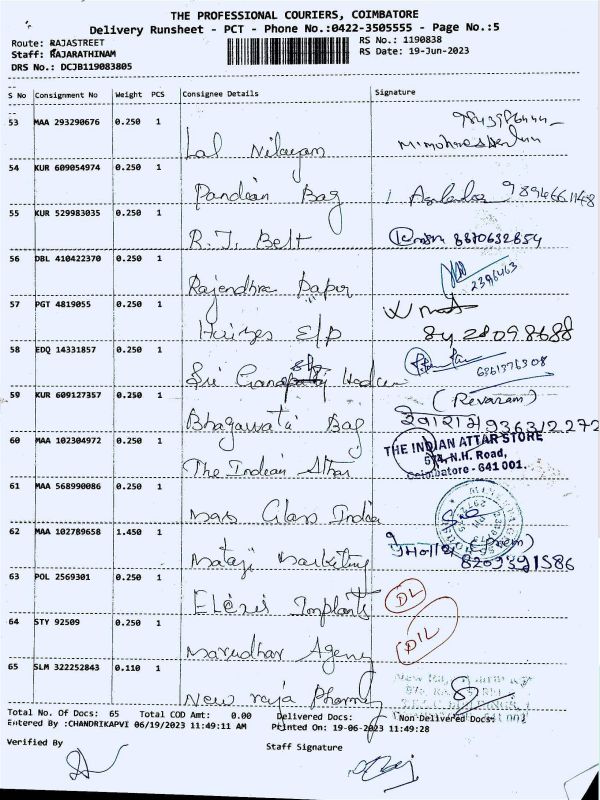 THE PROFESSIONAL COURIERS, COIMBATORE
Delivery Runsheet - PCT - Phone No.:0422-3505555 - Page No.:5
Route: RAJASTREET
RS No.: 1190838
Staff: RAJARATHINAM
RS Date: 19-Jun-2023
DRS No.: DCJB119083805
S No Consignment No Weight PCS Consignee Details Signature
53 MAA 293290676 0.250 1
Lal Nilayam
54 KUR 609054974 0.250 1
Pandian Bag
55 KUR 529983035 0.250 1
R.J. Belt 8870632854
56 DBL 410422370 0.250 1
Rajendhra Paper 2396463
57 PGT 4819055 0.250 1
E/P
58 EDQ 14331857 0.250 1
Sri
59 KUR 609127357 0.250 1
(Revaram)
Bhagawati Bag
60 MAA 102304972 0.250 1
THE INDIAN ATTAR STORE
674, N.H. Road,
Coimbatore - 641 001.
The Indian Attar
61 MAA 568990086 0.250 1
Glass India
62 MAA 102789658 1.450 1
(Prem)
Mataji Marketing
63 POL 2569301 0.250 1
Implants DL
64 STY 92509 0.250 1
Marudhar Agency DIL
65 SLM 322252843 0.110 1
New raja Pharmy
Total No. Of Docs: 65 Total COD Amt: 0.00 Delivered Docs: Non Delivered Docs:
Entered By :CHANDRIKAPVI 06/19/2023 11:49:11 AM Printed On: 19-06-2023 11:49:28
Verified By
Staff Signature